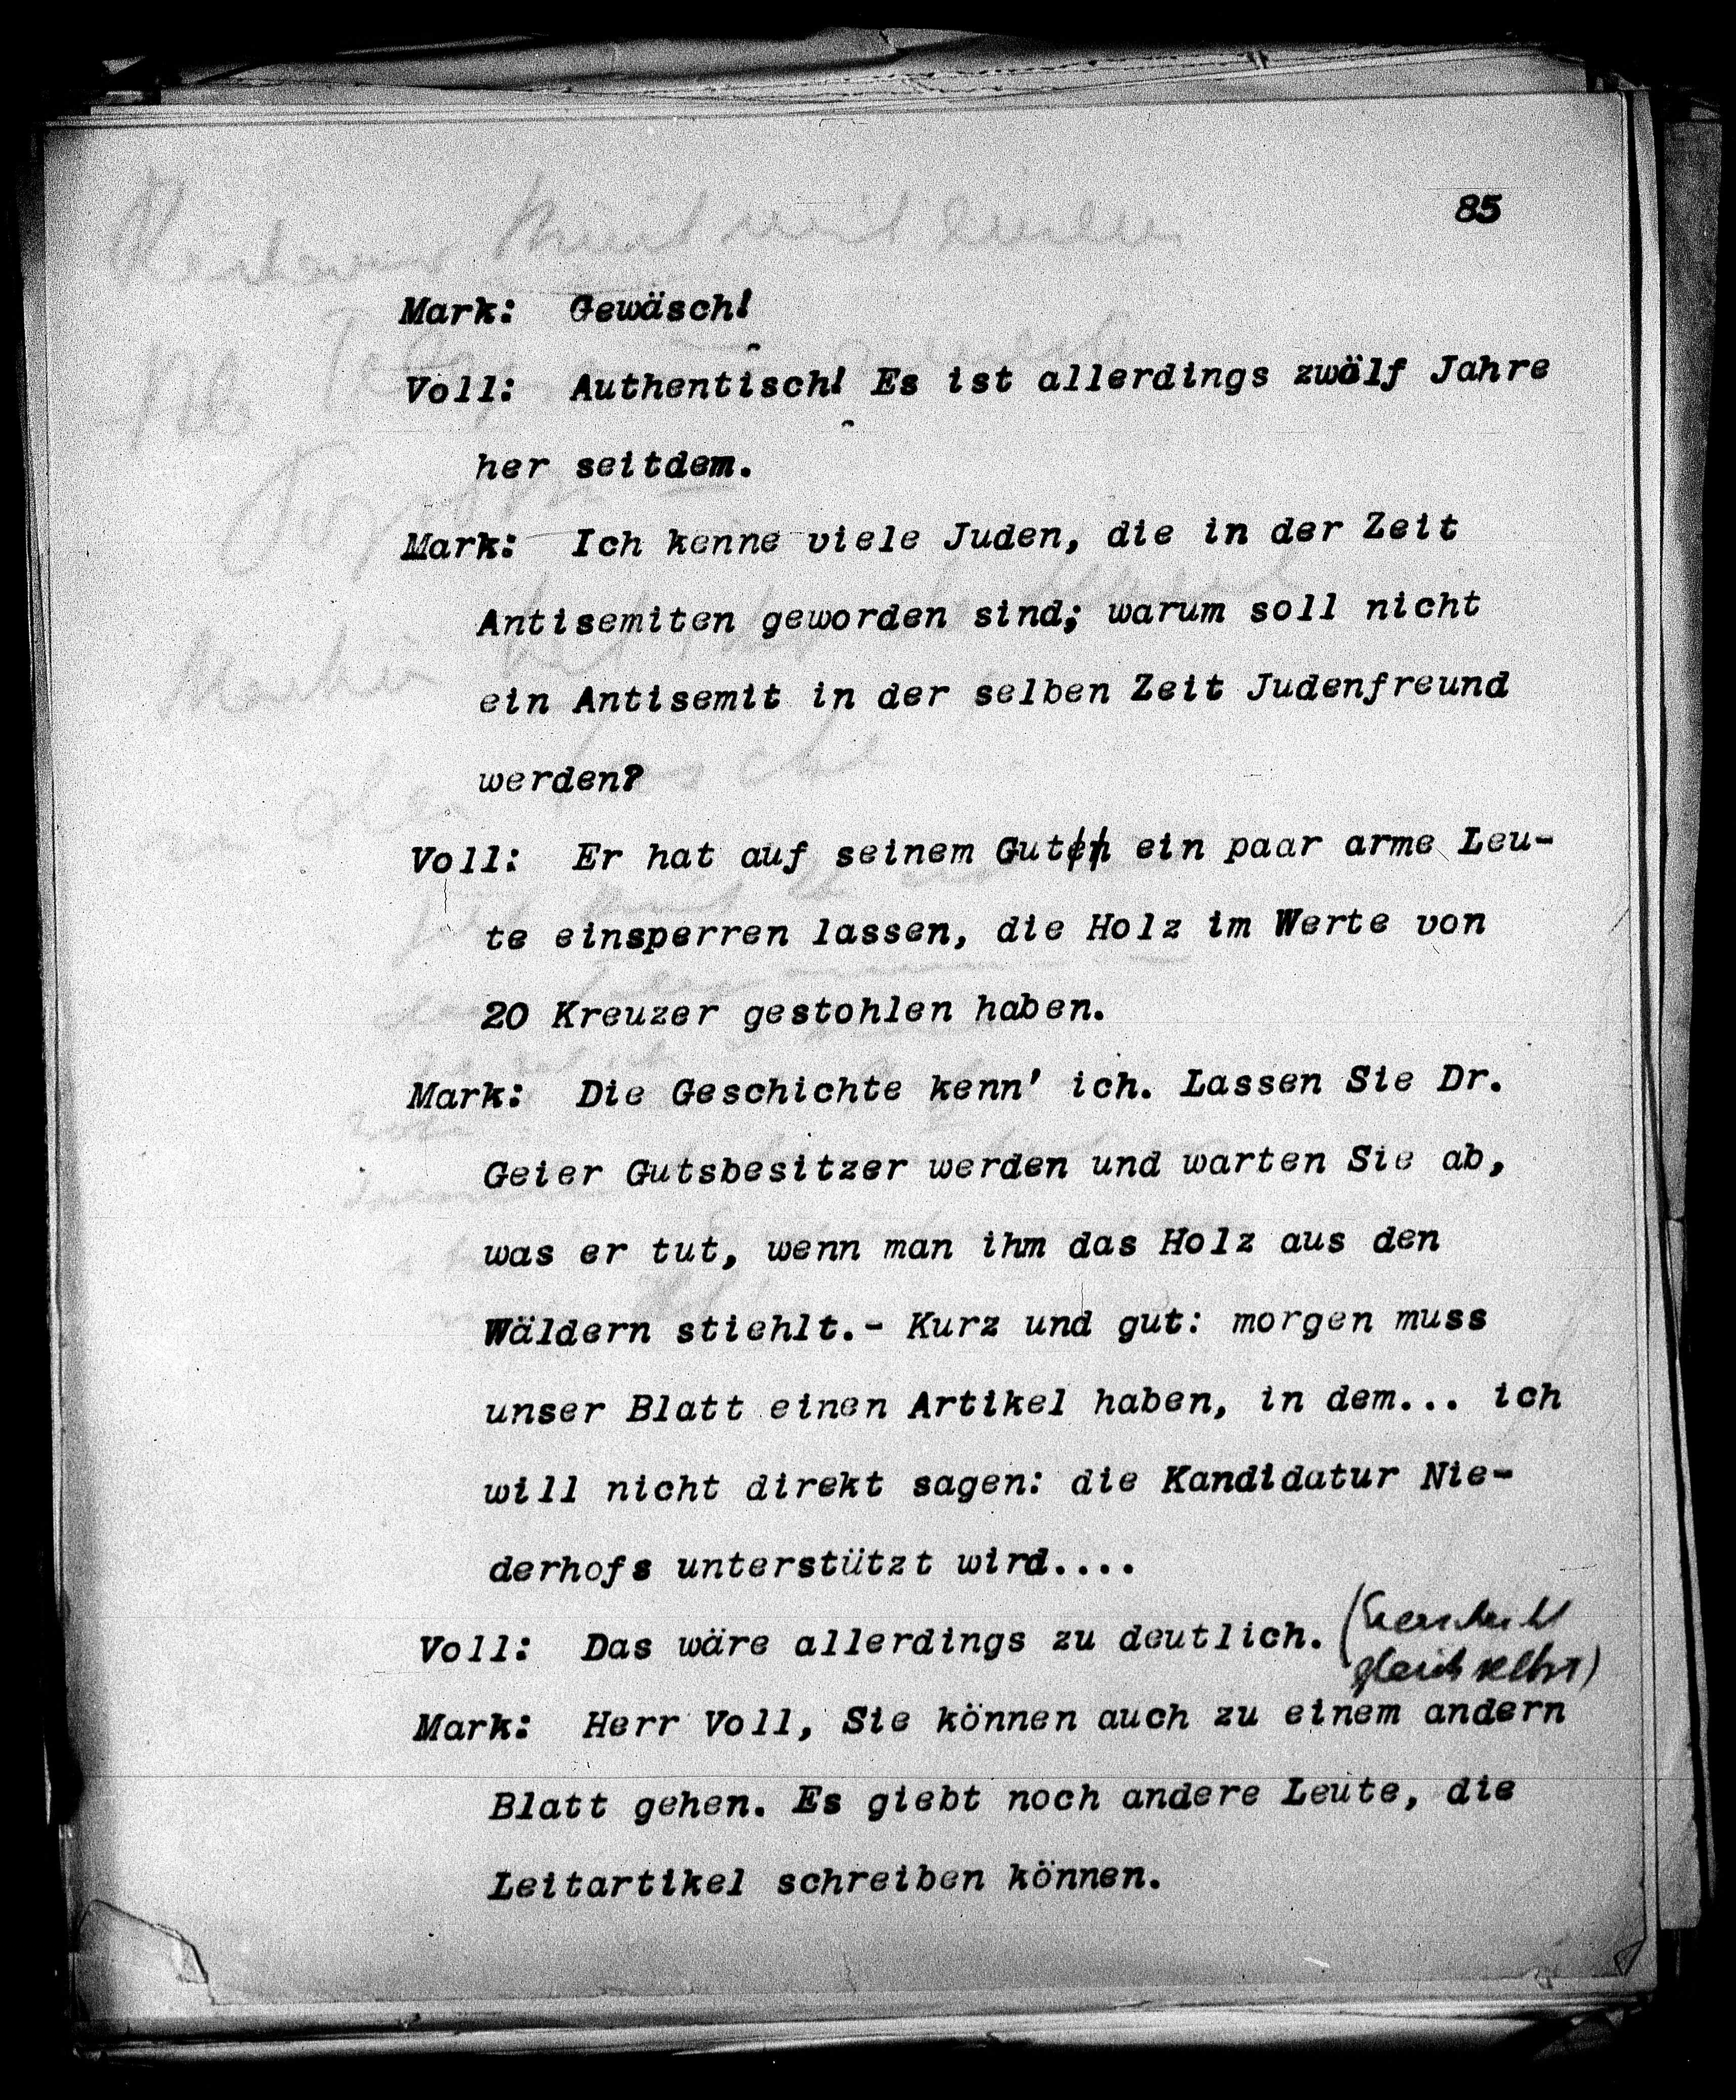 85
Mark: Gewäsch!
Voll: Authentisch! Es ist allerdings zwölf Jahre
her seitdem.
Mark: Ich kenne viele Juden, die in der Zeit
Antisemiten geworden sind; warum soll nicht
ein Antisemit in der selben Zeit Judenfreund
werden?
Voll: Er hat auf seinem Guten ein paar arme Leu-
te einsperren lassen, die Holz im Werte von
20 Kreuzer gestohlen haben.
Mark: Die Geschichte kenn' ich. Lassen Sie Dr.
Geier Gutsbesitzer werden und warten Sie ab,
was er tut, wenn man ihm das Holz aus den
Wäldern stiehlt.- Kurz und gut: morgen muss
unser Blatt einen Artikel haben, in dem... ich
will nicht direkt sagen: die Kandidatur Nie-
derhofs unterstützt wird....
Voll: Das wäre allerdings zu deutlich.
gleich selbst)
Mark: Herr Voll, Sie können auch zu einem andern
Blatt gehen. Es giebt noch andere Leute, die
Leitartikel schreiben können.